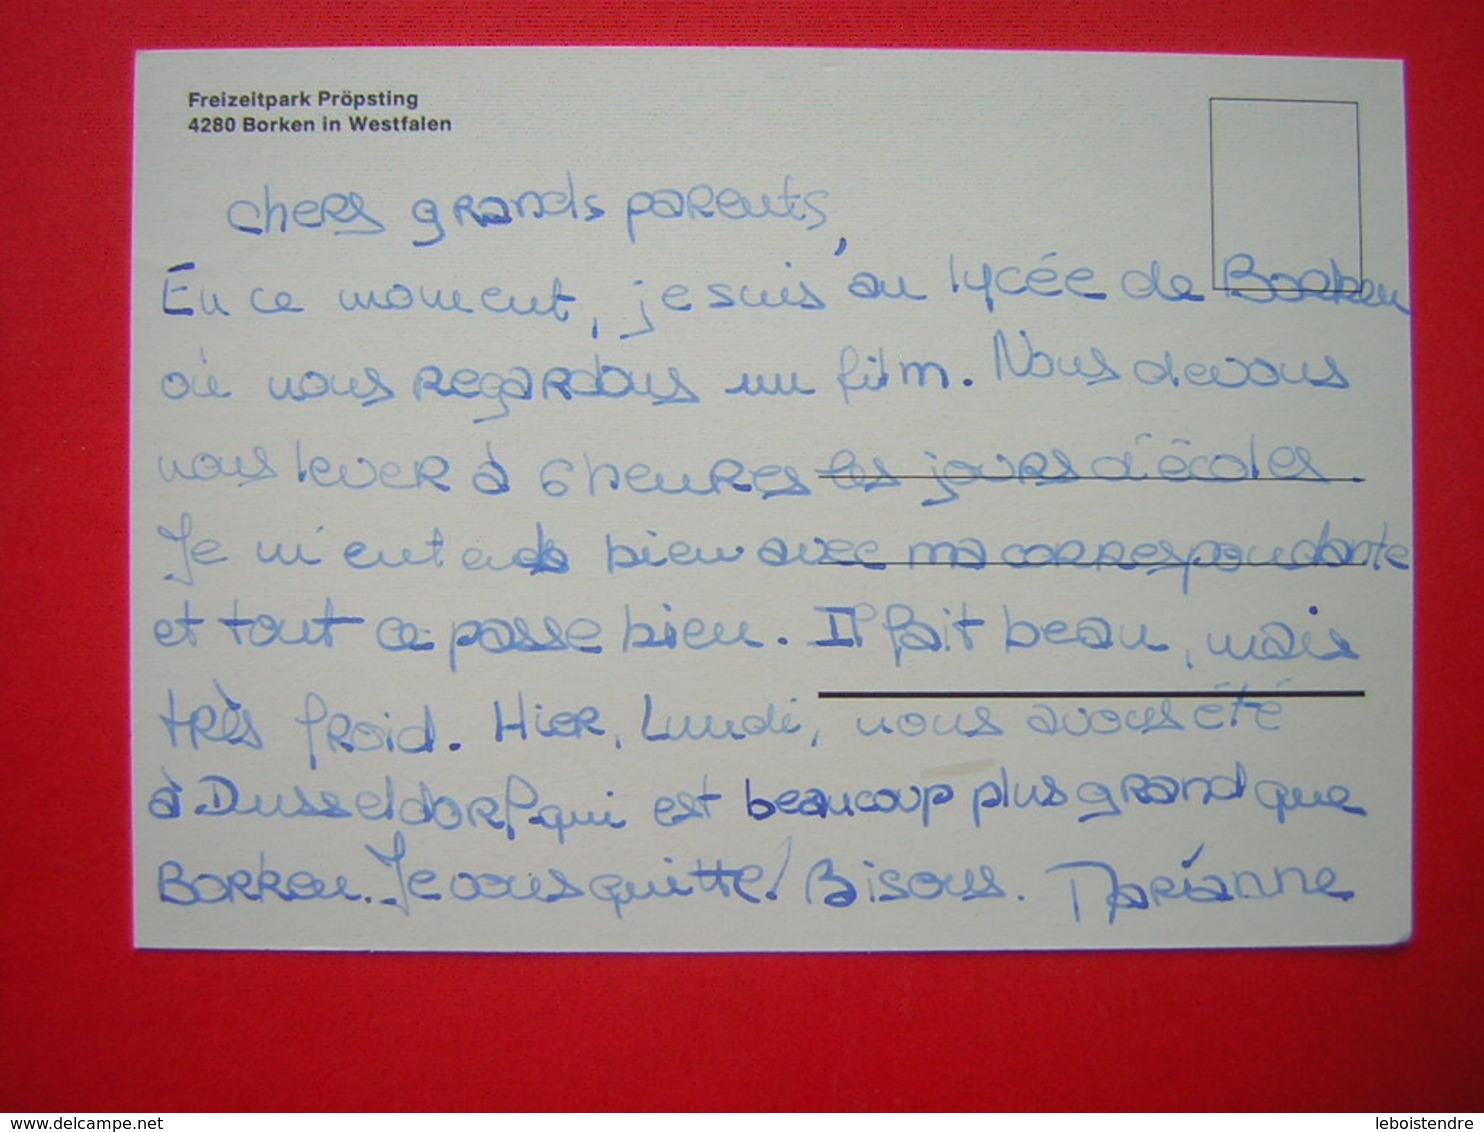 Freizeitpark Pröpsting
4280 Borken in Westfalen
chers grands parents,
En ce moment, je suis au lycée de Borken
où nous regardons un film. Nous devons
nous lever à 6 heures les jours d'écoles.
Je m'entends bien avec ma correspondante
et tout ce passe bien. Il fait beau, mais
très froid. Hier, Lundi, nous avons été
à Dusseldorf qui est beaucoup plus grand que
Borken. Je vous quitte! Bisous. Marianne
www.delcampe.net
leboistendre